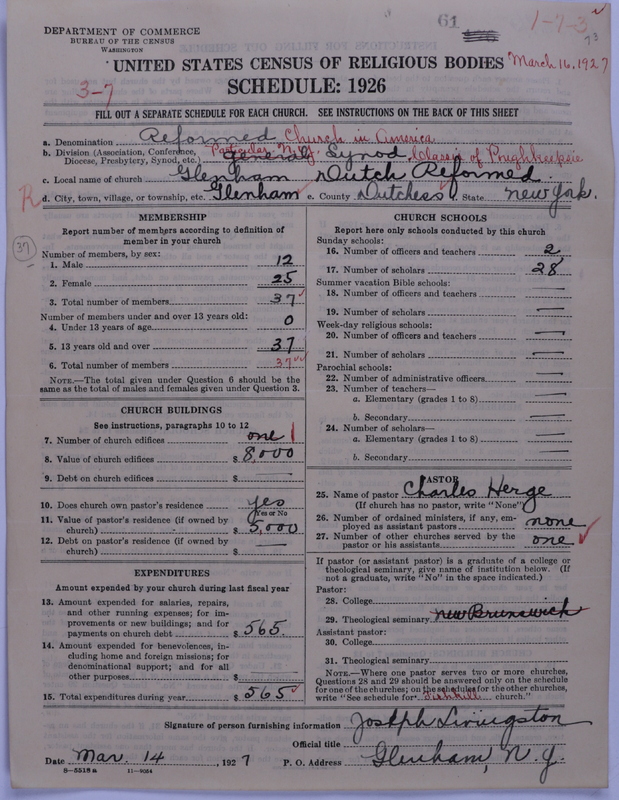 61
1-7-3
73
DEPARTMENT OF COMMERCE
BUREAU OF THE CENSUS
WASHINGTON
UNITED STATES CENSUS OF RELIGIOUS BODIES
March 16, 1927
SCHEDULE: 1926
3-7
FILL OUT A SEPARATE SCHEDULE FOR EACH CHURCH. SEE INSTRUCTIONS ON THE BACK OF THIS SHEET
a. Denomination Reformed Church in America
b. Division (Association, Conference, Diocese, Presbytery, Synod, etc.) Particular, N.Y. General Synod, Classis of Poughkeepsie
c. Local name of church Glenham Dutch Reformed
R
d. City, town, village, or township, etc. Glenham e. County Dutchess f. State New York.
MEMBERSHIP
Report number of members according to definition of
member in your church
37
Number of members, by sex:
1. Male 12
2. Female 25
3. Total number of members 37
Number of members under and over 13 years old:
4. Under 13 years of age 0
5. 13 years old and over 37
6. Total number of members 37
NOTE.—The total given under Question 6 should be the
same as the total of males and females given under Question 3.
CHURCH BUILDINGS
See instructions, paragraphs 10 to 12
7. Number of church edifices one 1
8. Value of church edifices $ 8,000
9. Debt on church edifices $ —
10. Does church own pastor's residence yes
Yes or No
11. Value of pastor's residence (if owned by
church) $ 5,000
12. Debt on pastor's residence (if owned by
church) $ —
EXPENDITURES
Amount expended by your church during last fiscal year
13. Amount expended for salaries, repairs,
and other running expenses; for im-
provements or new buildings; and for
payments on church debt $ 565.
14. Amount expended for benevolences, in-
cluding home and foreign missions; for
denominational support; and for all
other purposes $ —
15. Total expenditures during year $ 565
CHURCH SCHOOLS
Report here only schools conducted by this church
Sunday schools:
16. Number of officers and teachers 2
17. Number of scholars 28
Summer vacation Bible schools:
18. Number of officers and teachers —
19. Number of scholars —
Week-day religious schools:
20. Number of officers and teachers —
21. Number of scholars —
Parochial schools:
22. Number of administrative officers —
23. Number of teachers—
a. Elementary (grades 1 to 8) —
b. Secondary —
24. Number of scholars—
a. Elementary (grades 1 to 8) —
b. Secondary —
PASTOR
25. Name of pastor Charles Herge
(If church has no pastor, write "None")
26. Number of ordained ministers, if any, em-
ployed as assistant pastors none
27. Number of other churches served by the
pastor or his assistants one
If pastor (or assistant pastor) is a graduate of a college or
theological seminary, give name of institution below. (If
not a graduate, write "No" in the space indicated.)
Pastor:
28. College
29. Theological seminary New Brunswick
Assistant pastor:
30. College
31. Theological seminary
NOTE.—Where one pastor serves two or more churches,
Questions 28 and 29 should be answered only on the schedule
for one of the churches; on the schedules for the other churches,
write "See schedule for Fishkill church."
Signature of person furnishing information Joseph Livingston
Official title
Date Mar. 14, 1927 P. O. Address Glenham, N.Y.
8—5518 a 11—9054